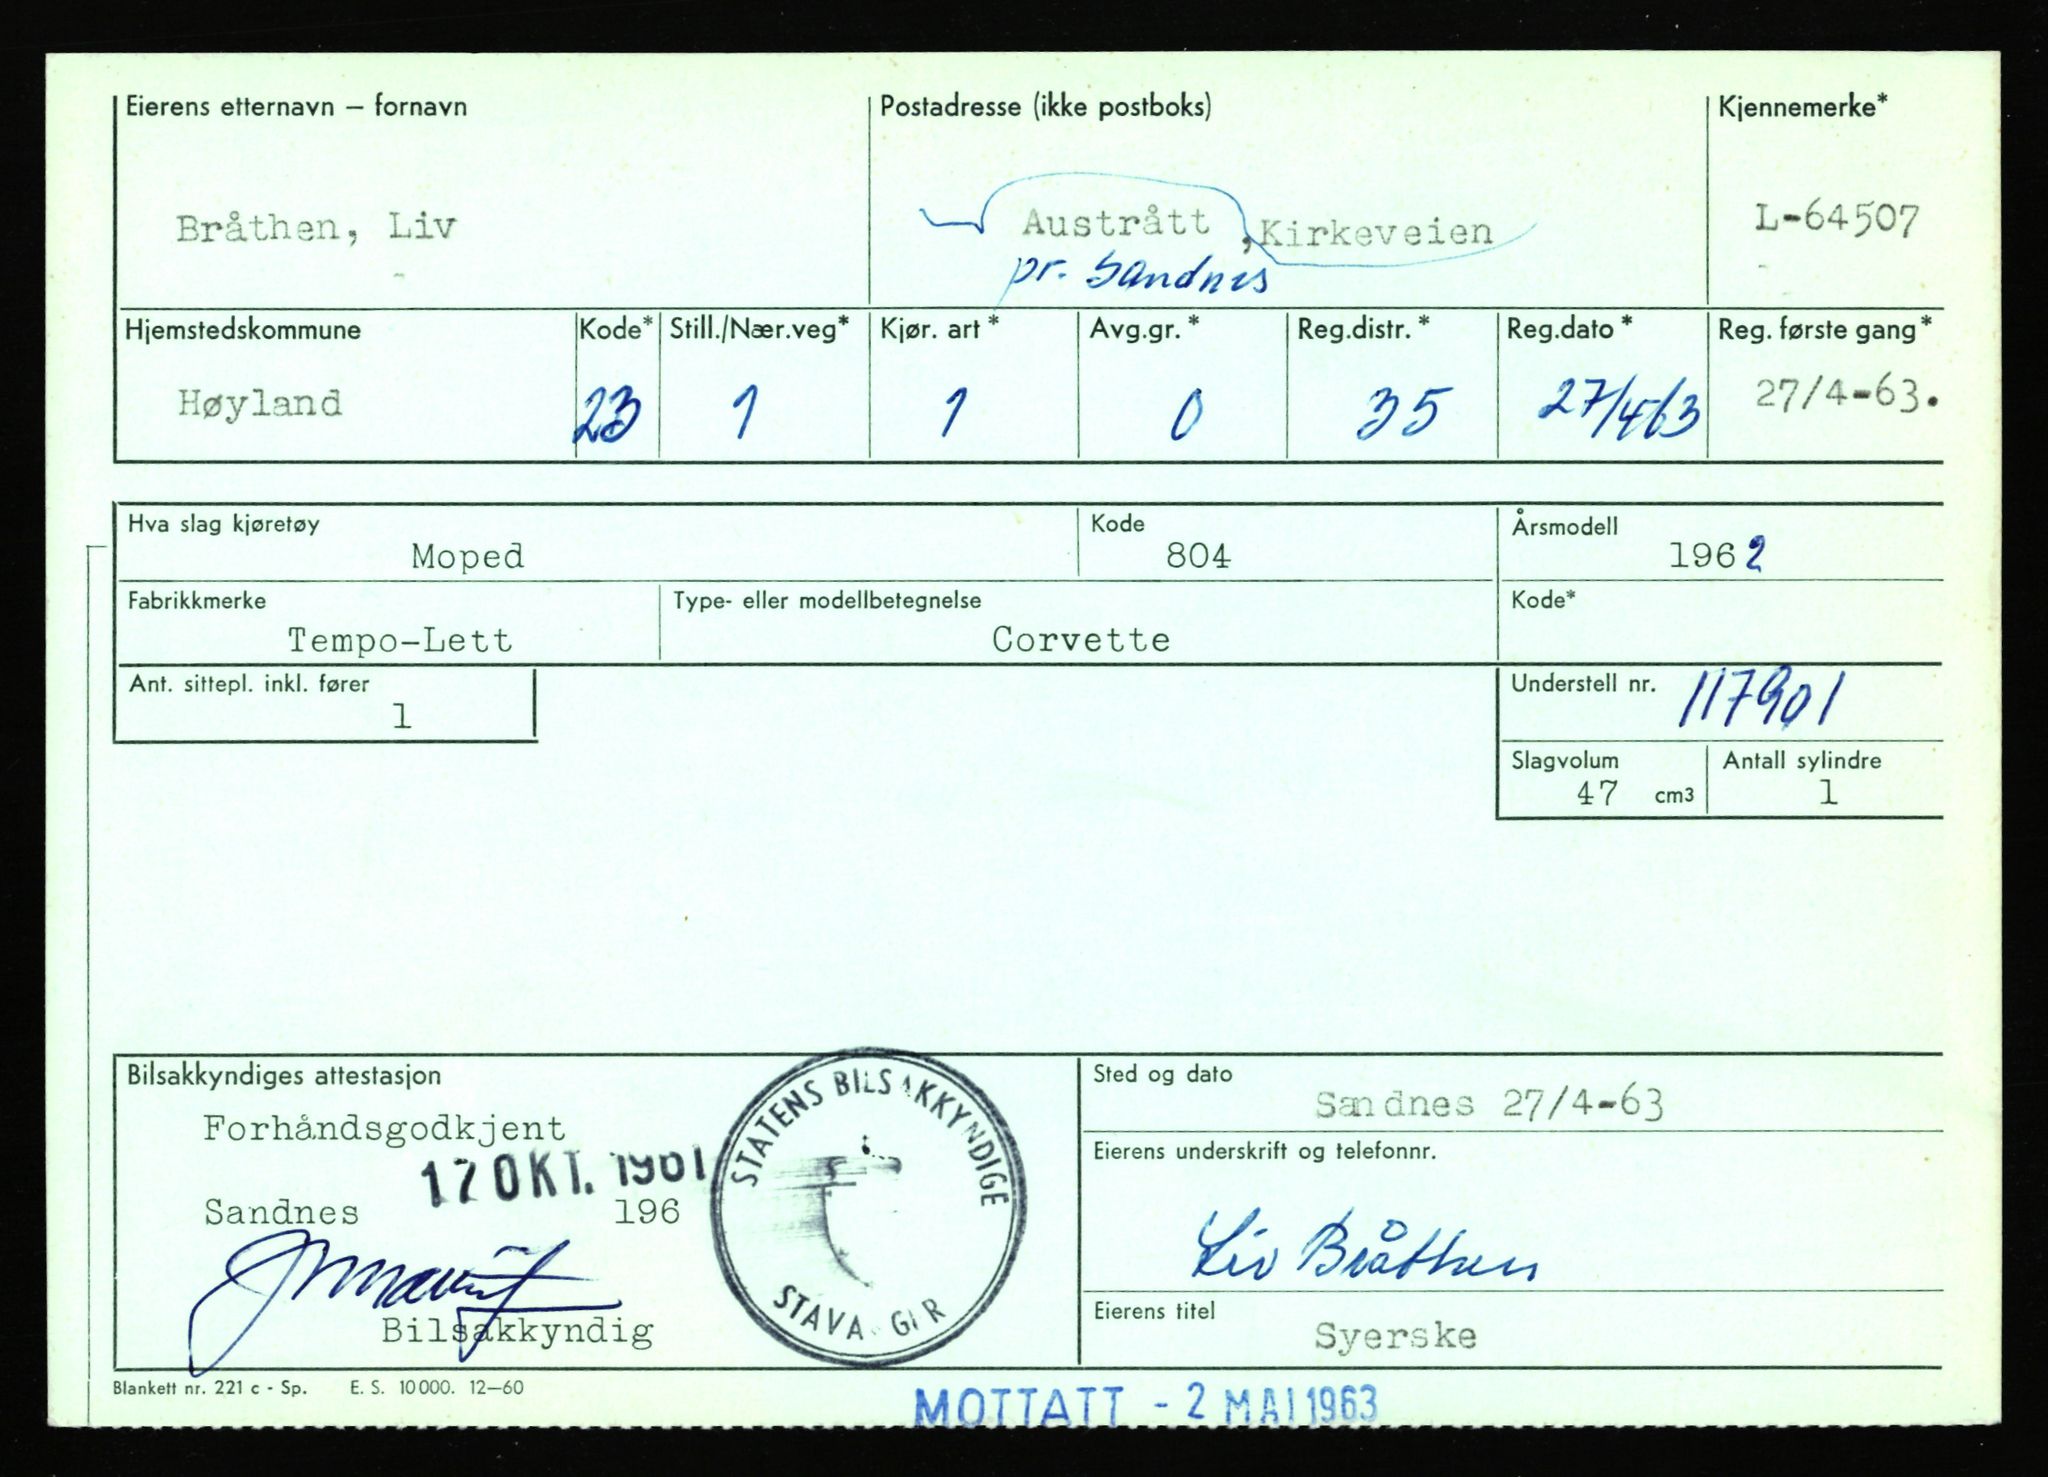 Eierens etternavn – fornavn
Postadresse (ikke postboks)
Kjennemerke*
Bråthen, Liv
Austrått ,Kirkeveien
pr. Sandnes
L-64507
Hjemstedskommune
Kode*
Still./Nær.veg*
Kjør. art *
Avg.gr. *
Reg.distr. *
Reg.dato *
Reg. første gang*
Høyland
23
1
1
0
35
27/4-63
27/4-63.
Hva slag kjøretøy
Moped
Kode
804
Årsmodell
1962
Fabrikkmerke
Tempo-Lett
Type- eller modellbetegnelse
Corvette
Kode*
Ant. sittepl. inkl. fører
1
Understell nr. 117901
Slagvolum
47 cm3
Antall sylindre
1
Bilsakkyndiges attestasjon
Forhåndsgodkjent
17 OKT. 1961
Sandnes 196
Bilsakkyndig
STATENS BILSAKKYNDIGE
STAVA GER
Sted og dato
Sandnes 27/4-63
Eierens underskrift og telefonnr.
Liv Bråthen
Eierens titel
Syerske
Blankett nr. 221 c - Sp. E. S. 10 000. 12–60
MOTTATT - 2 MAI 1963